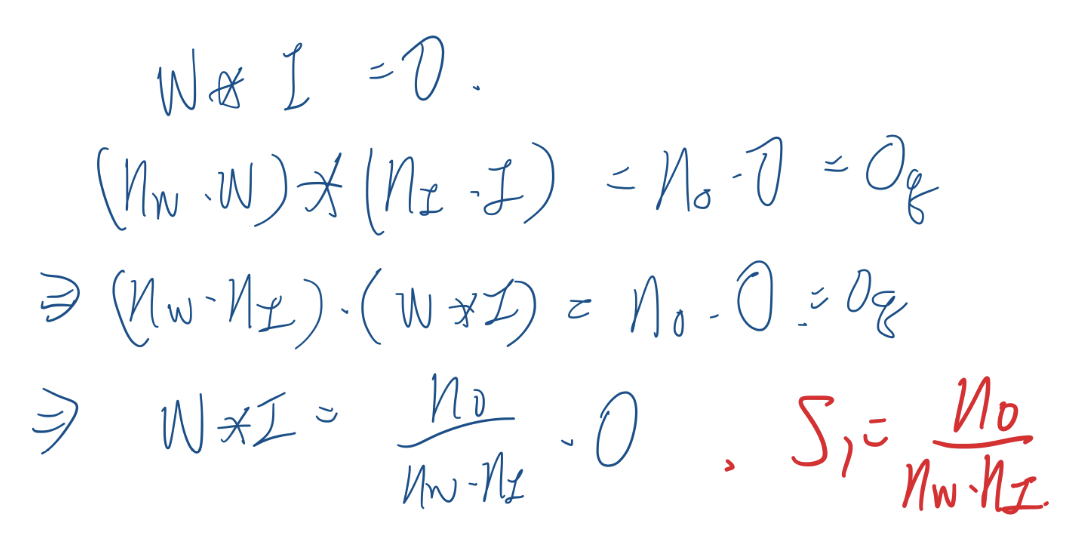 W * I = O.
(n_W · W) * (n_I · I) = n_o · O = O_q
⇒ (n_W · n_I) · (W * I) = n_o · O = O_q
⇒ W * I = n_o / (n_W · n_I) · O , S_1 = n_o / (n_W · n_I).